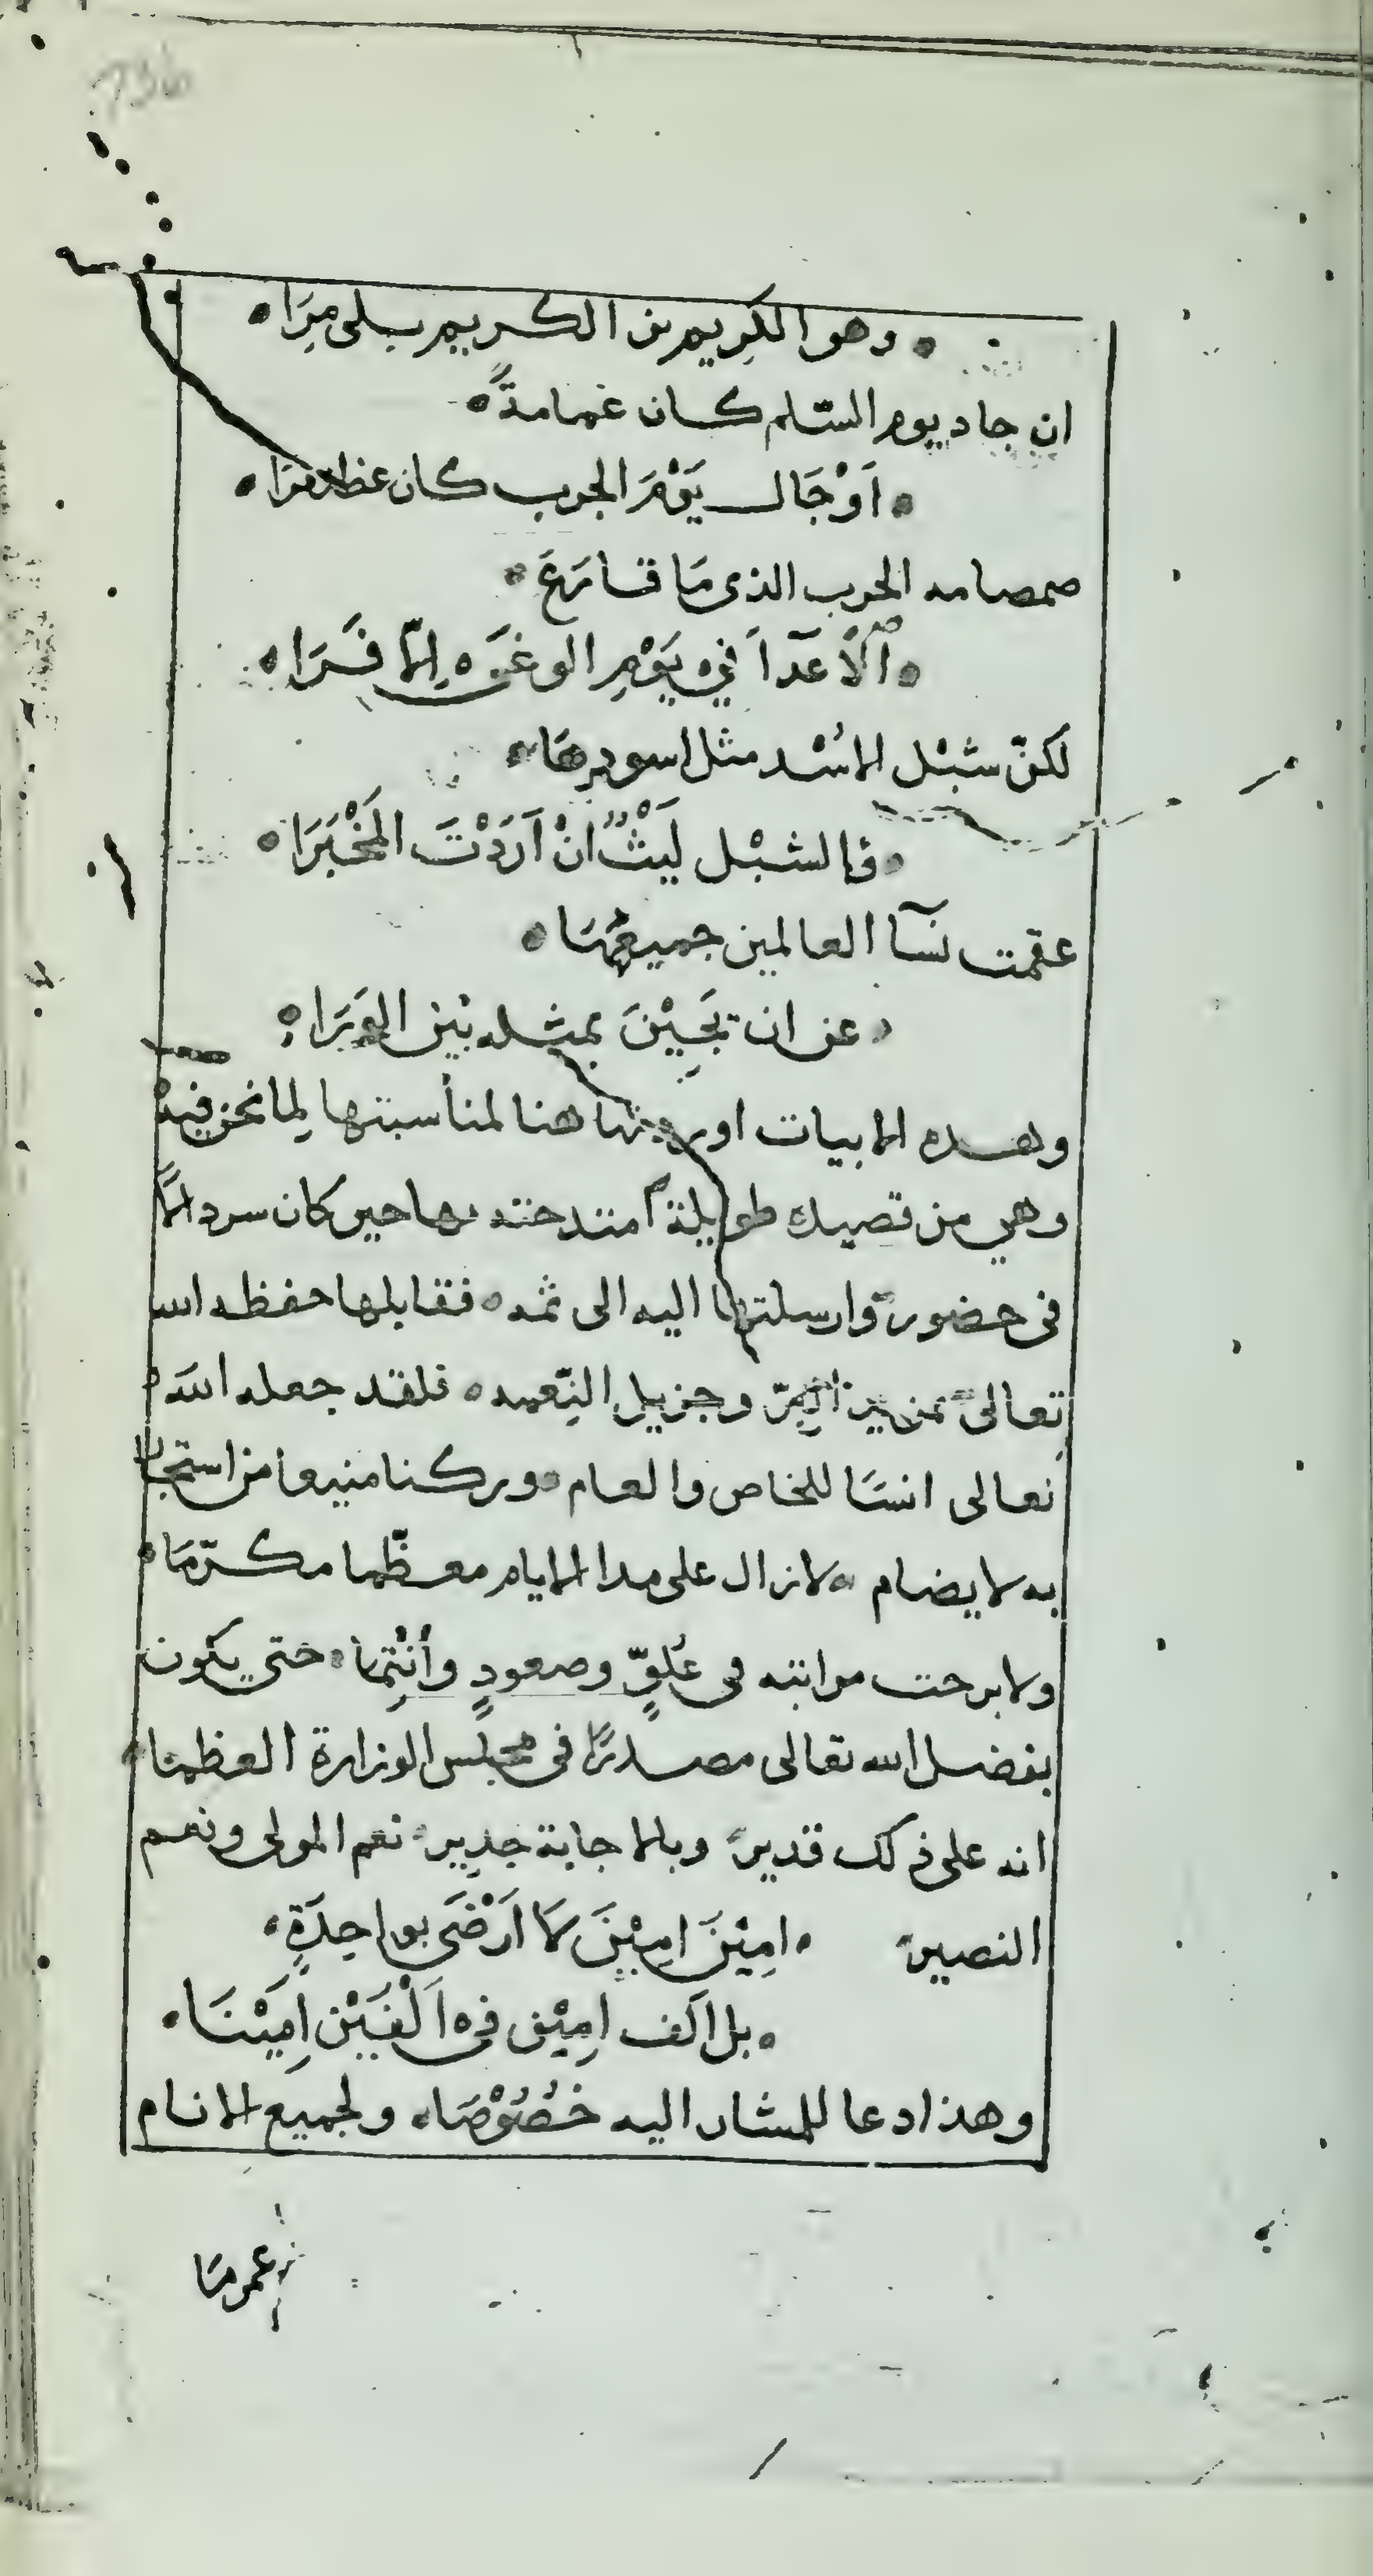 736
وهو الكريم بن الكريم بلى مِرَا
ان جاد يوم السّلم كان غمامةً
اَوْ جَال يَوْمَ الحرب كان غظنفرَا
صمصامه الحرب الذى مَا قارَعَ
اَلْاَعدآَ في يَوْمِ الوغَى اِلّا فَرَا
لكنّ شبْل الاسُد مثل اسودهَا
فالشبْل لَيْثٌ اِنْ اَرَدْتَ المَخْبَرَا
عقمت نسآ العالمين جميعهَا
عن ان تَجِيْنَ بمثله بَيْن الوَرَا
وهده الابيات اوردتها هنا لمناسبتها لِما نحن فيه
وهي من قصيده طويلة امتدحته بها حين كان سردالًا
فى حضور وارسلتها اليه الى ثمه فقابلها حفظه الله
تعالى بمزيد البِرّ وجزيل النّعمه فلقد جعله الله
تعالى انسًا للخاص والعام وركنا منيعا من استجا
به لا يضام لا زال على مدا الايام معظّما مكرّمًا
ولا برحت مراتبه فى عُلوٍّ وصعودٍ وأنْتِما حتى يكون
بفضل الله تعالى مصدرًا فى مجلس الوزارة العظما
انه على ذلك قدير وبالاجابة جدير نعم المولى ونعم
النصير امِيْنَ امِيْنَ لَا اَرْضَى بواحِدَةٍ
بل اَلف اِمِيْن فى اَلْفَيْن اِمِيْنَا
وهذا دعا للمشار اليه خصُوْصًا ولجميع الانام